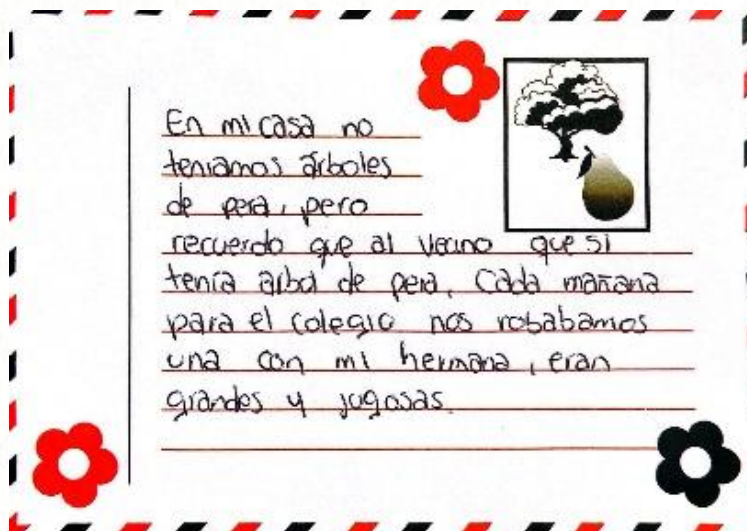 En mi casa no
teniamos árboles
de pera, pero
recuerdo que al vecino que si
tenía arbol de pera, cada mañana
para el colegio nos robabamos
una con mi hermana, eran
grandes y jugosas.